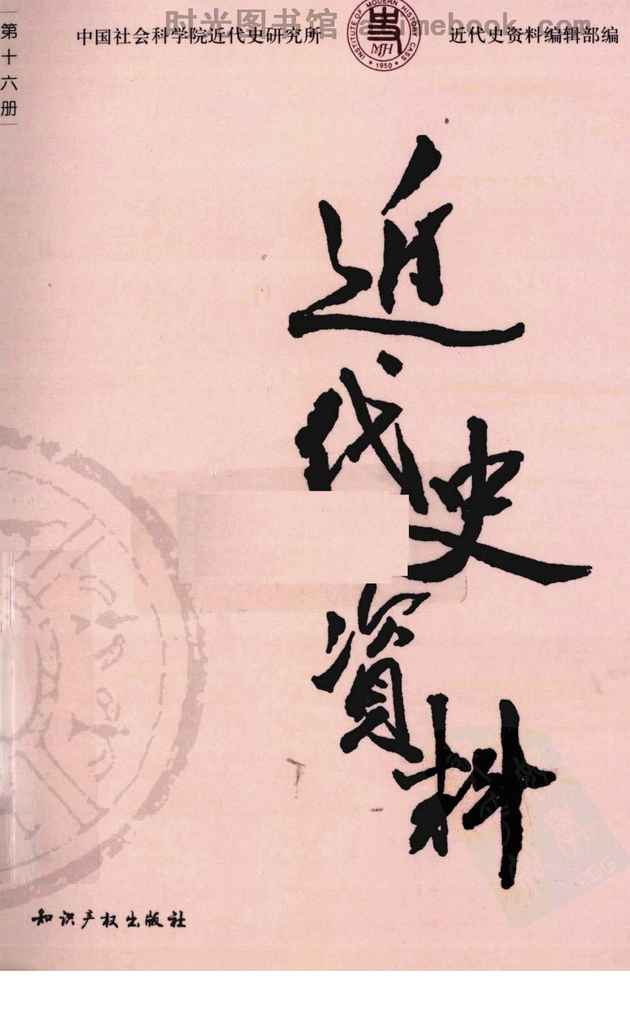 第十六册
时光图书馆 mebook.com
中国社会科学院近代史研究所
INSTITUTE OF MODERN HISTORY CASS
MJH
1950
近代史资料编辑部编
近代史资料
知识产权出版社